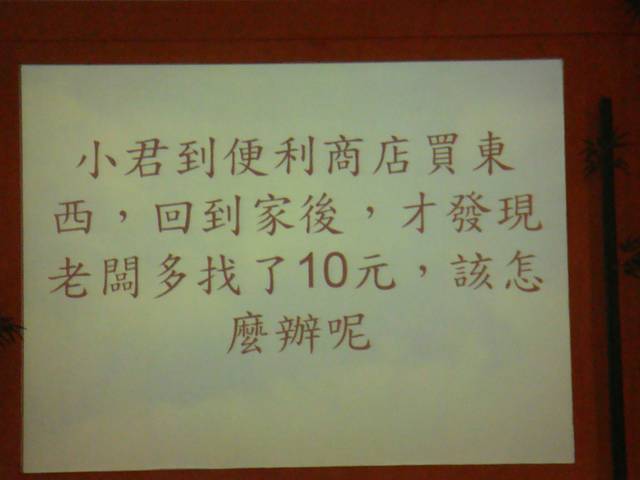 小君到便利商店買東
西，回到家後，才發現
老闆多找了10元，該怎
麼辦呢